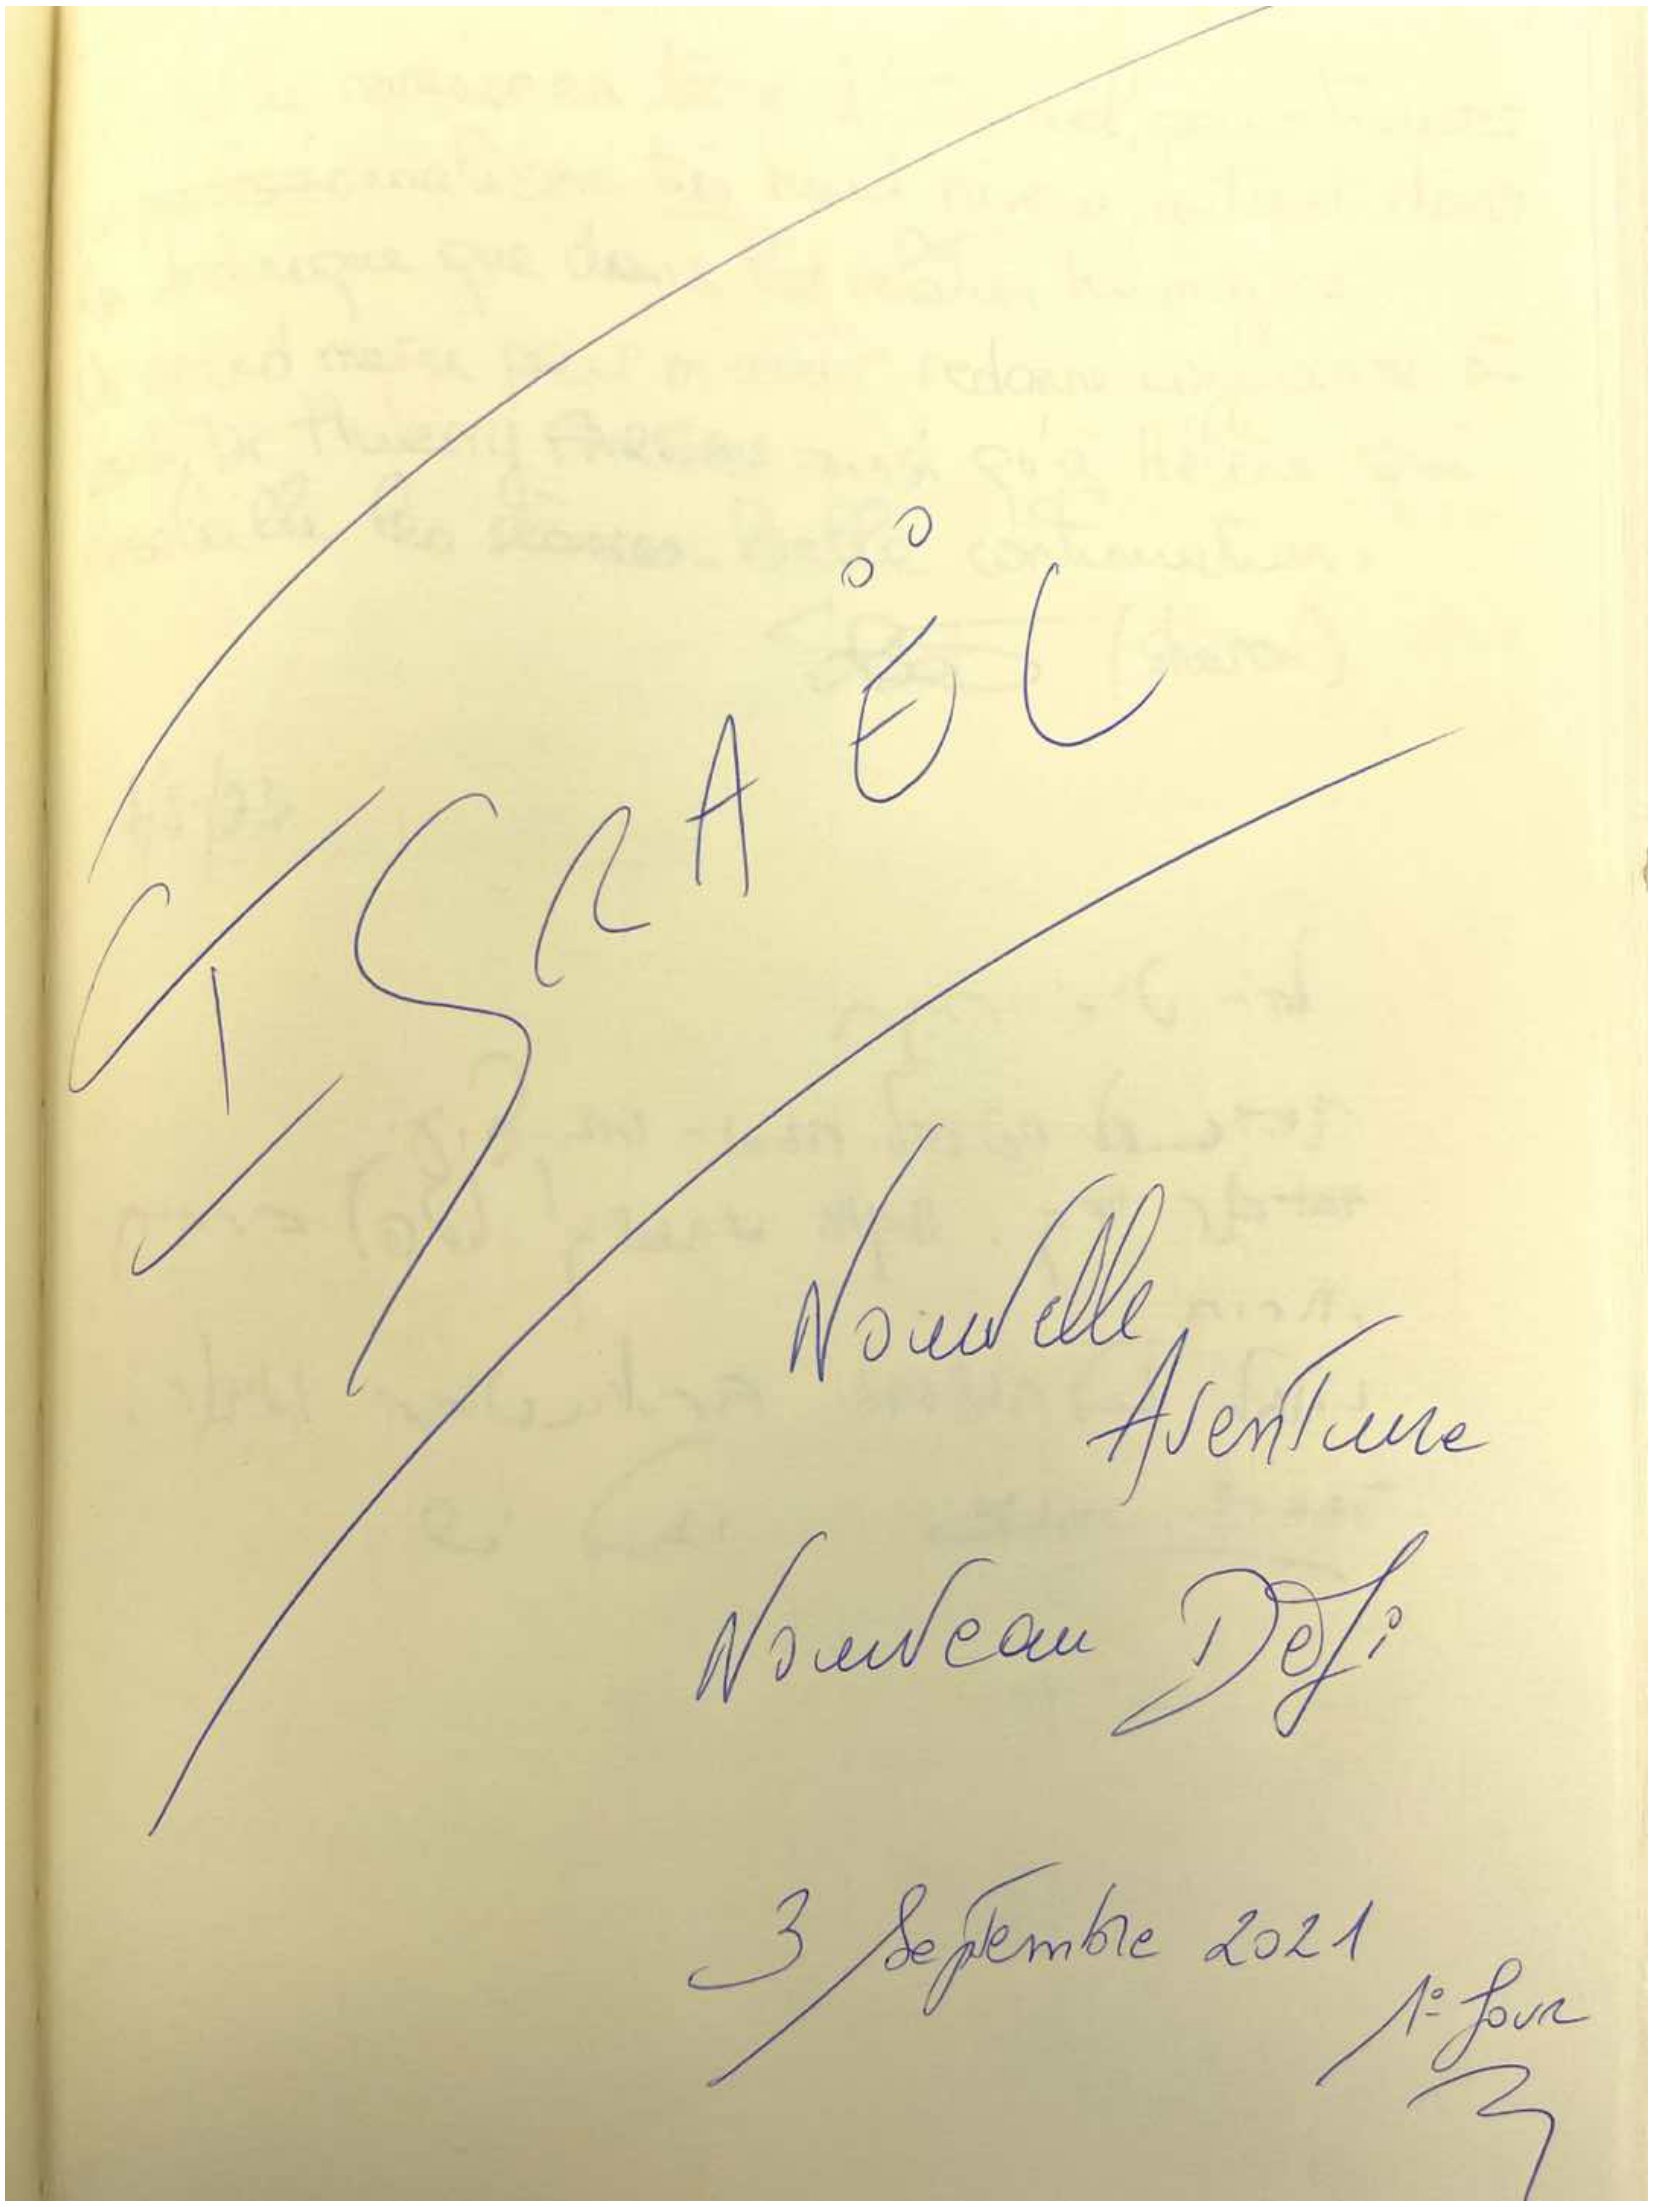 ISRAËL
Nouvelle
Aventure
Nouveau Defi
3 Septembre 2021
1° Jour